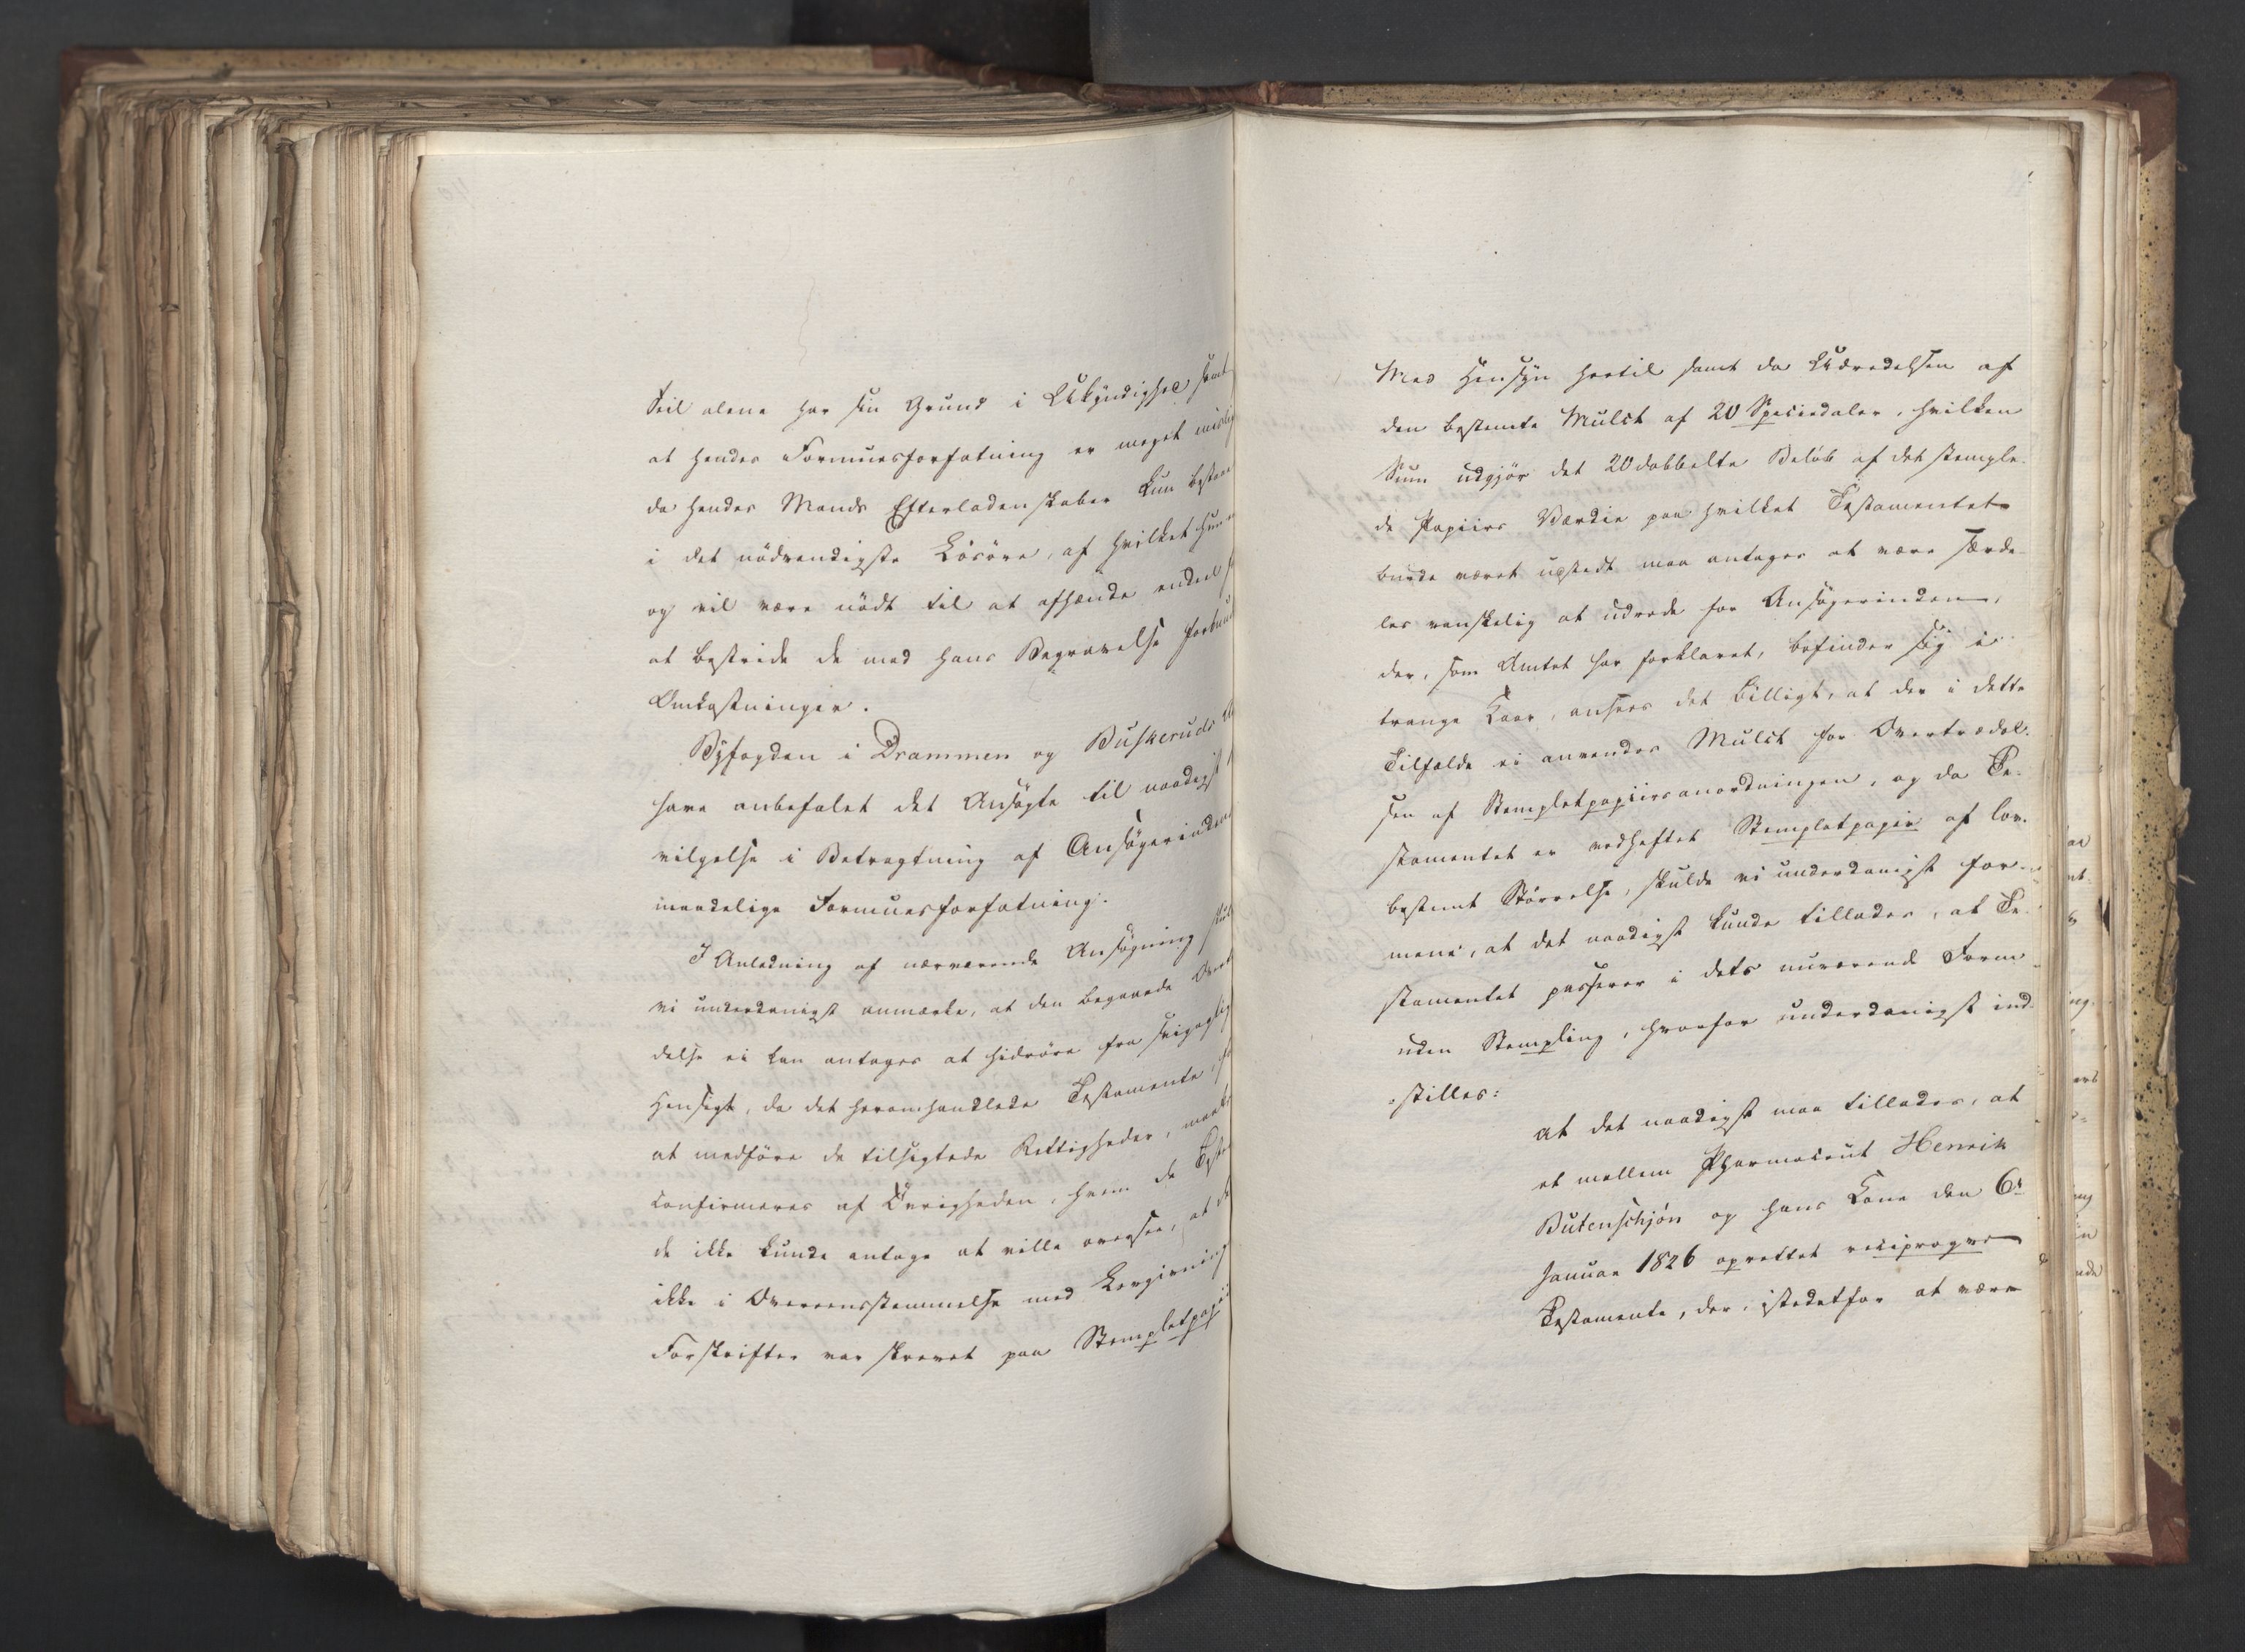 Feil alene har sin Grund i Ukyndighed samt
at hendes Formuesforfatning er meget mislig
da hendes Mands Efterladenskaber kun bestaae
i det nödvendigste Lösöre, af hvilket hun
og vil være nödt til at afhænde endeel
at bestride de med hans Begravelse forbund
Omkostninger.
Byfogden i Drammen og Buskeruds
have anbefalet det Ansögte til naadigst
vilgelse i Betragtning af Ansögerinden
maadelige Formuesforfatning.
I Anledning af nærværende Ansögning skul
vi underdanigst anmærke, at den begaaede Overt
delse ei kan antages at hidröre fra svigagtig
Hensigt, da det heromhandlede Testamente,
at medföre de tilsigtede Rettigheder, maatte
confirmeres af Övrigheden, hvem de Testa
de ikke kunde antage at ville oversee, at de
ikke i Overeensstemmelse med Lovgivning
Forskrifter var skrevet paa Stempletpapi
Med Hensyn hertil samt da Udredelsen af
den bestemte Mulct af 20 Speciedaler, hvilken
Sum udgjör det 20dobbelte Belöb af det stemple-
de Papiirs Værdie paa hvilket Testamentet
burde været udstedt maa antages at være særde-
les vanskelig at udrede for Ansögerinden,
der, som Amtet har forklaret, befinder sig i
trange Kaar, ansees det billigt, at der i dette
Tilfælde ei anvendes Mulct for Overtrædel-
sen af Stempletpapiirsanordningen, og da Te-
stamentet er vedheftet Stempletpapir af lov-
bestemt Störrelse, skulde vi underdanigst for-
mene, at det naadigst kunde tillades, at Te-
stamentet passerer i dets nuværende Form
uden Stempling, hvorfor underdanigst ind-
stilles:
at det naadigst maa tillades, at
et mellem Pharmaceut Henrik
Butenschjön og hans Kone den 6te
Januar 1826 oprettet reciproqve
Testamente, der, istedetfor at være